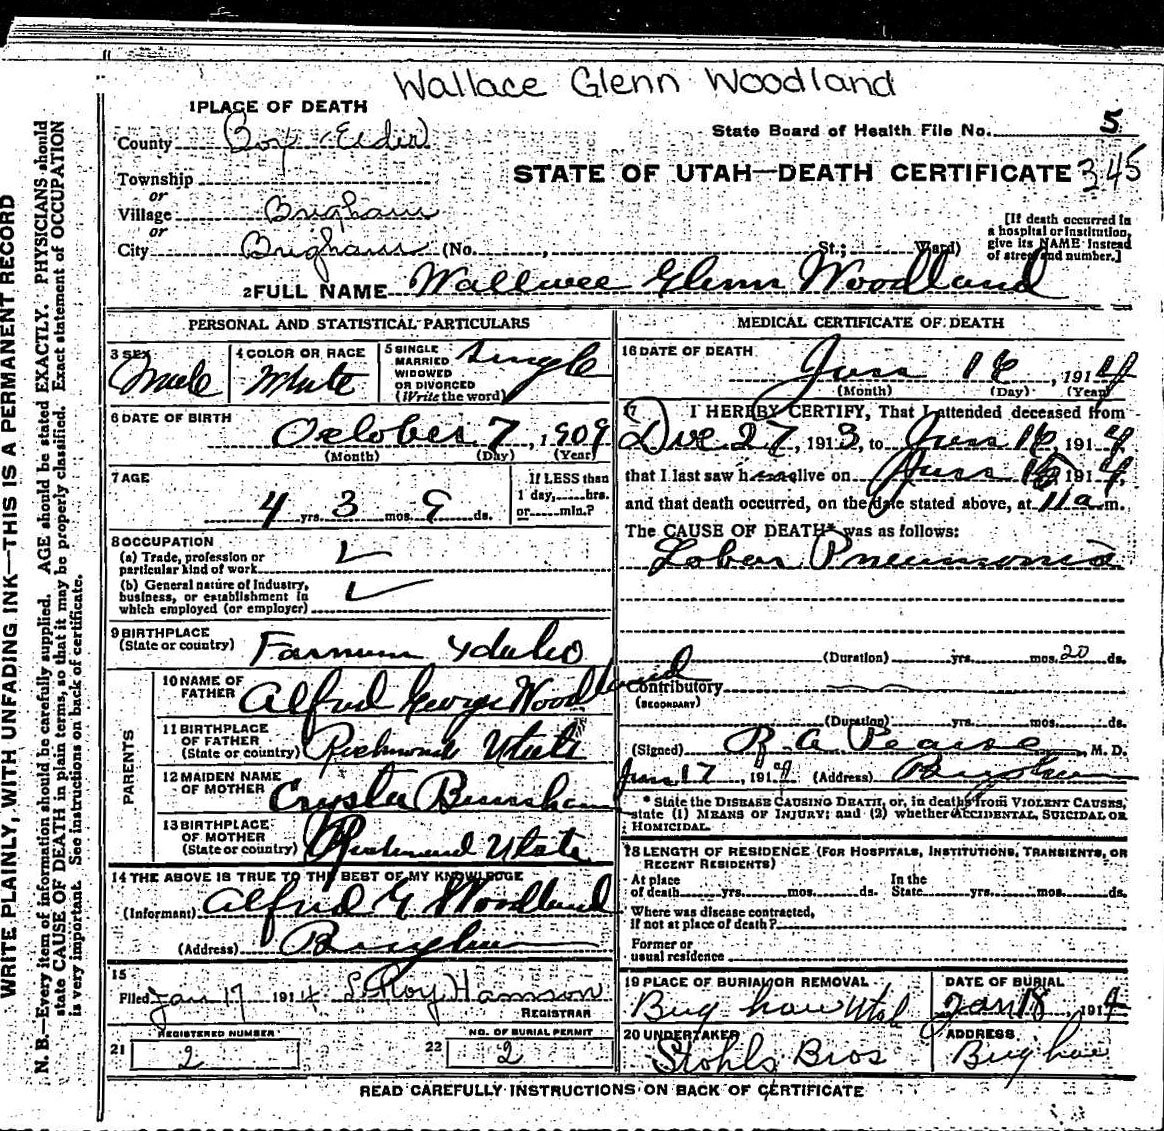 Wallace Glenn Woodland
1 PLACE OF DEATH
County Box Elder
State Board of Health File No. 5
Township
STATE OF UTAH—DEATH CERTIFICATE 345
or
Village Brigham
or
City Brigham (No. , St.; Ward)
[If death occurred in
a hospital or institution,
give its NAME instead
of street and number.]
2 FULL NAME Wallace Glenn Woodland
PERSONAL AND STATISTICAL PARTICULARS
3 SEX
Male
4 COLOR OR RACE
White
5 SINGLE
MARRIED
WIDOWED
OR DIVORCED
(Write the word)
Single
6 DATE OF BIRTH
October 7, 1909
(Month) (Day) (Year)
7 AGE
4 yrs. 3 mos. 9 ds.
If LESS than
1 day, hrs.
or min.?
8 OCCUPATION
(a) Trade, profession or
particular kind of work
(b) General nature of Industry,
business, or establishment in
which employed (or employer)
9 BIRTHPLACE
(State or country) Farnum Idaho
PARENTS
10 NAME OF
FATHER Alfred George Woodland
11 BIRTHPLACE
OF FATHER
(State or country) Richmond Utah
12 MAIDEN NAME
OF MOTHER
13 BIRTHPLACE
OF MOTHER
(State or country) Richmond Utah
14 THE ABOVE IS TRUE TO THE BEST OF MY KNOWLEDGE
(Informant) Alfred G Woodland
(Address) Brigham
15
Filed Jan 17 1914 LeRoy Hamson
REGISTRAR
REGISTERED NUMBER
21 2
NO. OF BURIAL PERMIT
22 2
MEDICAL CERTIFICATE OF DEATH
16 DATE OF DEATH
Jan 16, 1914
(Month) (Day) (Year)
17 I HEREBY CERTIFY, That I attended deceased from
Dec 27, 1913, to Jan 16 1914
that I last saw him alive on Jan 16 1914,
and that death occurred, on the date stated above, at 11 a m.
The CAUSE OF DEATH* was as follows:
Lobar Pneumonia
(Duration) yrs. mos. 20 ds.
Contributory
(SECONDARY)
(Duration) yrs. mos. ds.
(Signed) R A Pearse, M. D.
Jan 17, 1914 (Address) Brigham
* State the DISEASE CAUSING DEATH, or, in deaths from VIOLENT CAUSES,
state (1) MEANS OF INJURY; and (2) whether ACCIDENTAL, SUICIDAL OR
HOMICIDAL.
18 LENGTH OF RESIDENCE (FOR HOSPITALS, INSTITUTIONS, TRANSIENTS, OR
RECENT RESIDENTS)
At place
of death yrs. mos. ds.
In the
State yrs. mos. ds.
Where was disease contracted,
if not at place of death?
Former or
usual residence
19 PLACE OF BURIAL OR REMOVAL
Brigham Utah
DATE OF BURIAL
Jan 18, 1914
20 UNDERTAKER
Stohls Bros
ADDRESS
Brigham
READ CAREFULLY INSTRUCTIONS ON BACK OF CERTIFICATE
WRITE PLAINLY, WITH UNFADING INK—THIS IS A PERMANENT RECORD
N. B.—Every item of information should be carefully supplied. AGE should be stated EXACTLY. PHYSICIANS should
state CAUSE OF DEATH in plain terms, so that it may be properly classified. Exact statement of OCCUPATION
is very important. See instructions on back of certificate.